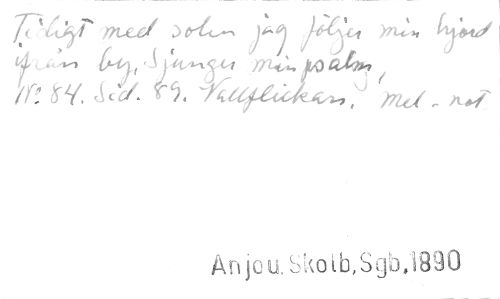 Tidigt med solen jag följer min hjord
ifrån by, Sjunger min psalm,
No 84. Sid. 89. Vallflickan. mel-not
Anjou, Skolb, Sgb, 1890